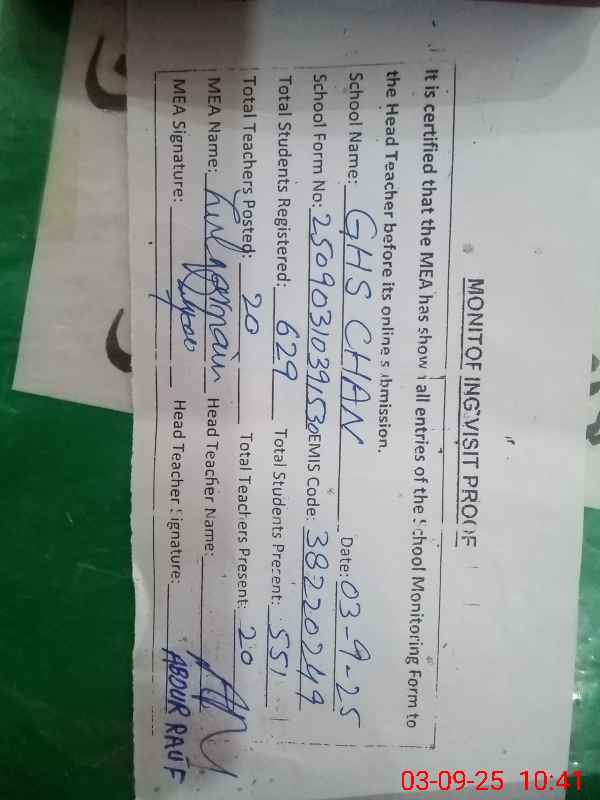 MONITORING VISIT PROOF
It is certified that the MEA has shown all entries of the School Monitoring Form to
the Head Teacher before its online submission.
School Name: GHS CHAN Date: 03-9-25
School Form No: 25090310391530 EMIS Code: 38220249
Total Students Registered: 629 Total Students Present: 551
Total Teachers Posted: 20 Total Teachers Present: 20
MEA Name: Head Teacher Name:
MEA Signature: Head Teacher Signature: ABDUR RAUF
03-09-25 10:41